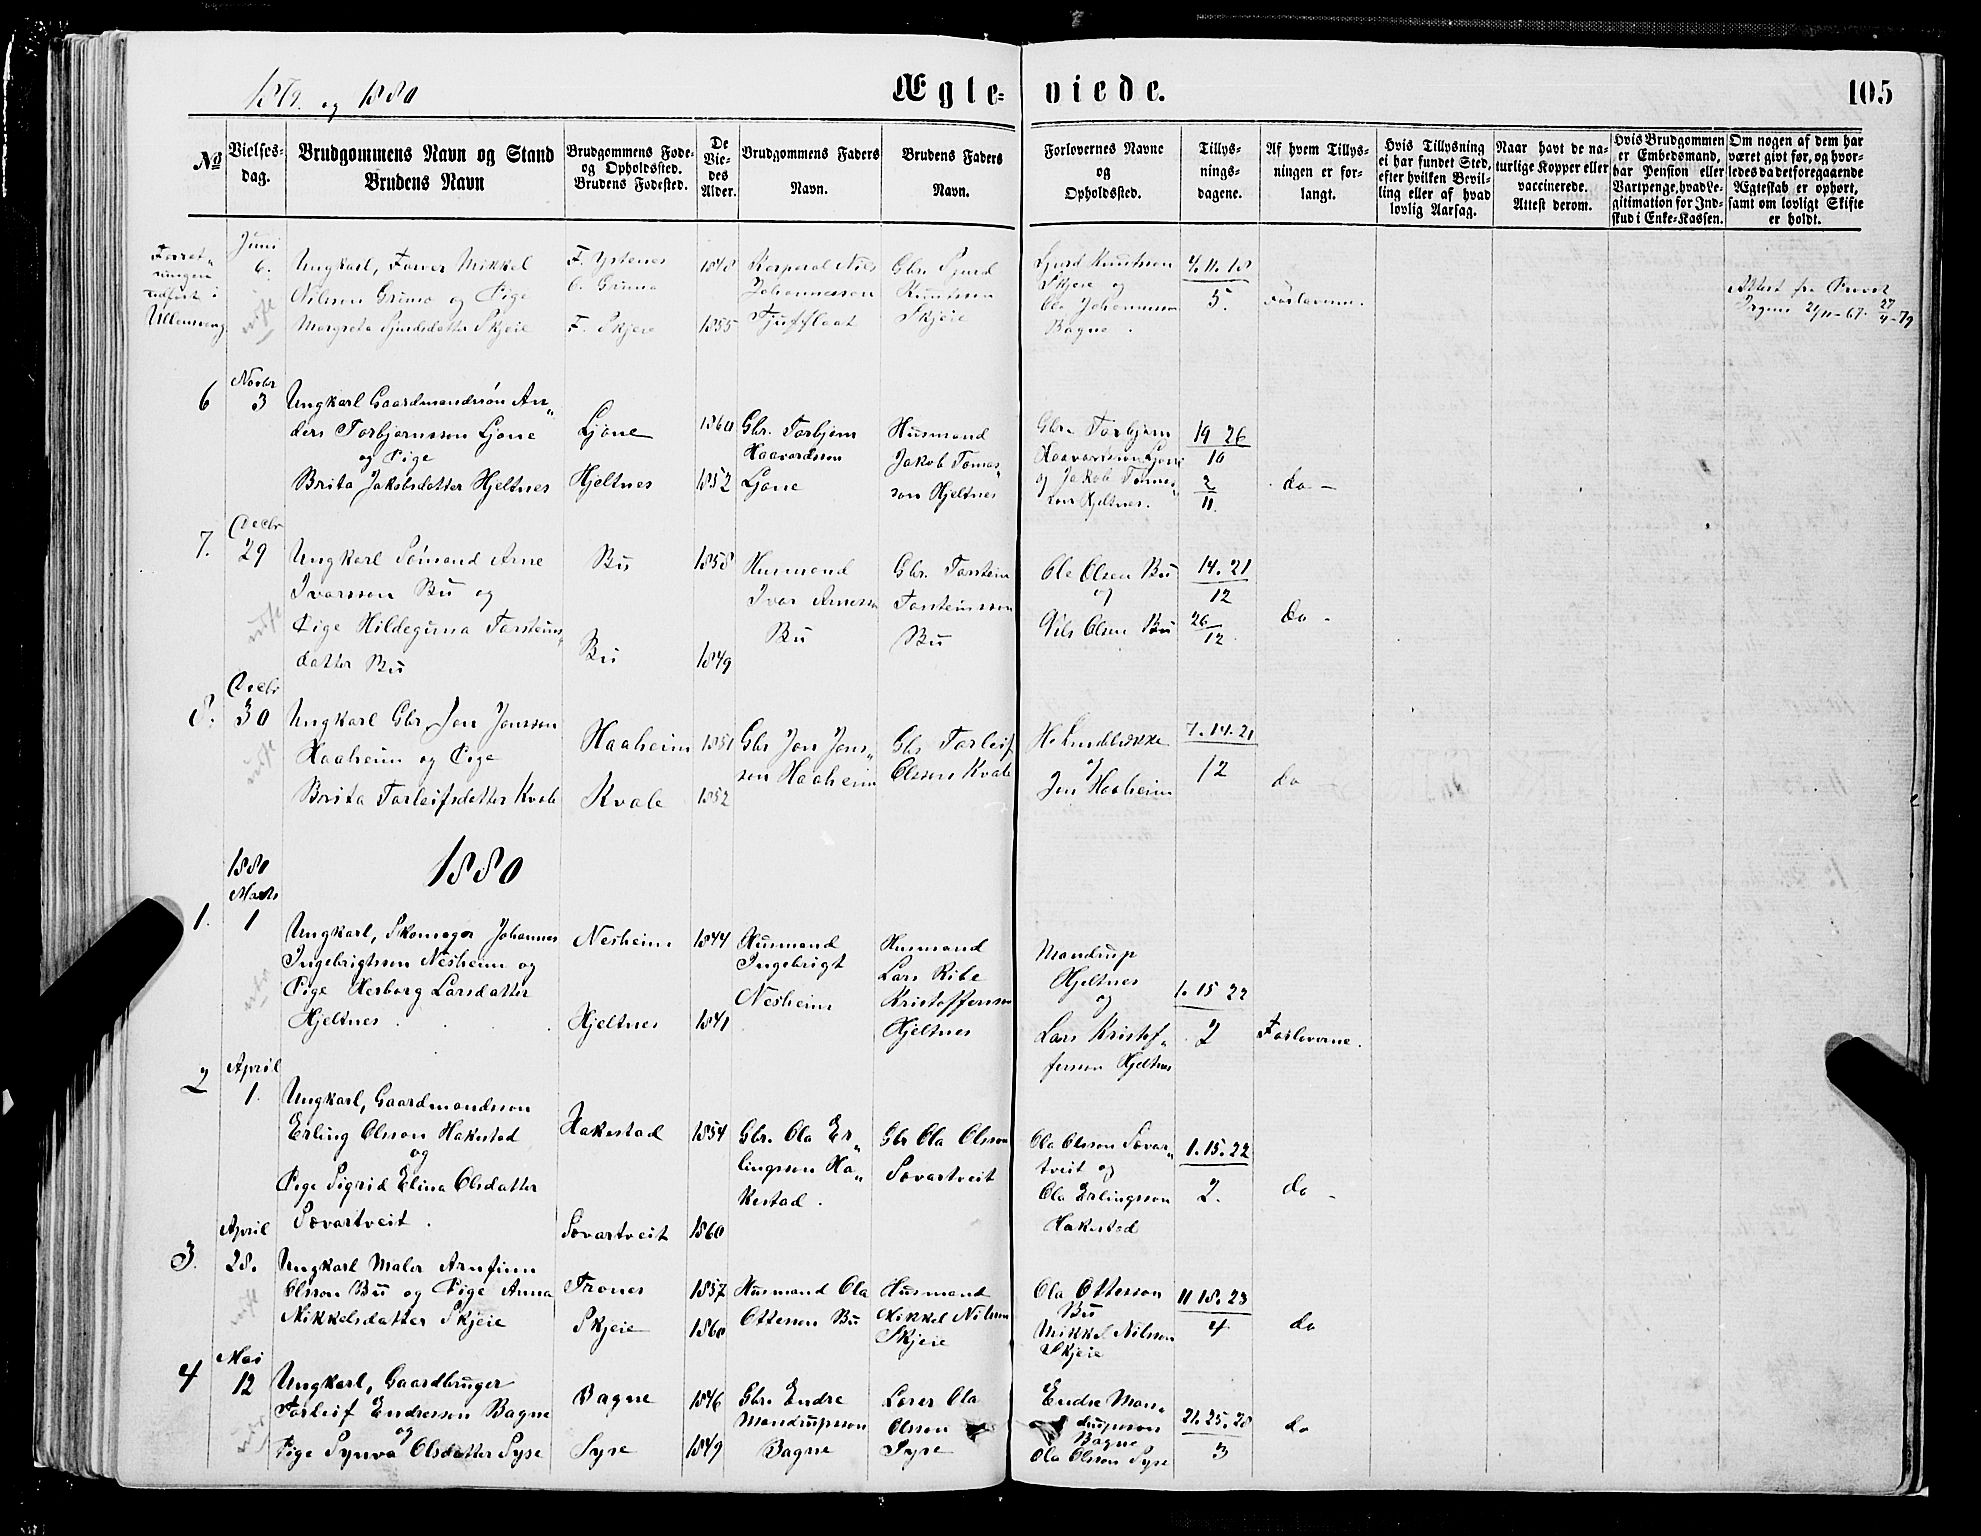 1879. og 1880
Ægte-viede.
105
No
Vielses-dag.
Brudgommens Navn og Stand
Brudens Navn
Brudgommens Føde-
og Opholdssted.
Brudens Fødested.
De
Vie-
des
Alder.
Brudgommens Faders
Navn.
Brudens Faders
Navn.
Forlovernes Navne
og
Opholdssted.
Tillys-
nings-
dagene.
Af hvem Tillys-
ningen er for-
langt.
Hvis Tillysning
ei har fundet Sted,
efter hvilken Bevil-
ling eller af hvad
lovlig Aarsag.
Naar havt de na-
turlige Kopper eller
vaccinerede.
Attest derom.
Hvis Brudgommen
er Embedsmand,
har Pension eller
Vartpenge, hvad Le-
gitimation for Ind-
skud i Enke-Kassen.
Om nogen af dem har
været givt før, og hvor-
ledes da det foregaaende
Ægteskab er ophørt,
samt om lovligt Skifte
er holdt.
Forret-
ningen
udført i
Ullensvang
Juni
6.
Ungkarl, Farver Mikkel
Nilsen Grimo og Pige
Margreta Sjurdsdatter Skjeie
F. Ystenes
O. Grimo
F. Skjeie
1848
1855
Korporal Nils
Johannessen
Tjufflaat
Gbr. Sjurd
Knutsson
Skjeie
Sjurd Knutsson
Skjeie og
Ola Johannesson
Bagne.
4. 11. 18
5.
Forloverne.
Attest fra Provst
6
Novbr
3
Ungkarl Gaardmandssøn An-
ders Torbjørnsson Ljone
og Pige
Brita Jakobsdatter Hjeltnes
Ljone
Hjeltnes
1860
1852
Gbr. Torbjørn
Haavardsson
Ljone
Husmand
Jakob Tomas-
son Hjeltnes
Gbr. Torbjørn
Haavardsson Ljone
og Jakob Tomas-
son Hjeltnes.
19 26
10
2
11.
do -
7.
Decbr
29
Ungkarl Sømand Arne
Ivarsson Bu og
Pige Hildeguna Torsteins-
datter Bu
Bu
Bu
1858
1849
Husmand
Ivar Arnesson
Bu
Gbr. Torstein
Torsteinsson
Bu
Ole Olsen Bu
og
Nils Olsen Bu
14. 21
12
26
12.
do -
8.
Decbr
30
Ungkarl Gbr. Jon Jonsson
Haaheim og Pige
Brita Torleifsdatter Kvale
Haaheim
Kvale
1851
1852
Gbr Jon Jons-
son Haaheim
Gbr Torleif
Olsson Kvale
og
Jon Haaheim
7. 14. 21
12
do
1880
Marts
1880
1.
1
Ungkarl, Skomager Johannes
Ingebrigtsen Nesheim og
Pige Herborg Larsdatter
Hjeltnes.
Nesheim
Hjeltnes
1844
1841
Husmand
Ingebrigt
Nesheim
Husmand
Lars Ribe
Kristoffersson
Hjeltnes
Mandrup
Hjeltnes
og
Lars Kristof-
fersson Hjeltnes
1. 15 22
2
Forloverne.
2
April
1.
Ungkarl, Gaardmandsson
Erling Olsson Hakestad
og
Pige Sigrid Elina Olsdatter
Sovartveit.
Hakestad
Sovartveit
1854
1860
Gbr. Ola Er-
lingsson Ha-
kestad.
Gbr Ola Olsson
Sovartveit
Ola Olsson Sovar-
tveit og
Ola Erlingsson
Hakestad
1. 15. 22
2.
do -
3.
April
28.
Ungkarl Maler Arnfinn
Olsson Bu og Pige Anna
Mikkelsdatter Skjeie
Trones
Skjeie
1857
1860
Husmand Ola
Ottesen Bu
Husmand
Mikkel Nilsson
Skjeie
Ola Ottesson
Bu
Mikkel Nilsson
Skjeie
11 18. 23
4
do
4
Mai
12
Ungkarl, Gaardbruger
Torleif Endresson Bagne
og
Pige Synva Olsdatter Syse
Bagne
Syse
1846
1849
Gbr. Endre
Mandrupsson
Bagne
Lærer Ola
Olsson
Syse
Endre Man-
drupsson
Bagne
Ola Olsson Syse
21. 25. 28
3
do